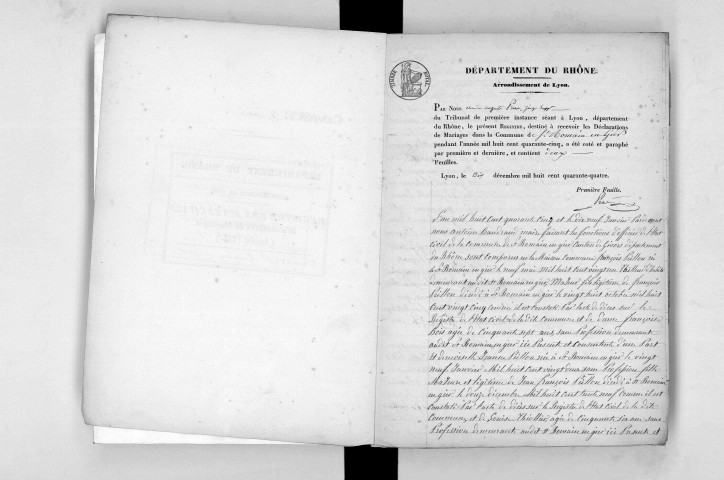 TIMBRE ROYAL
DÉPARTEMENT DU RHÔNE.
Arrondissement de Lyon.
PAR NOUS
du Tribunal de première instance séant à Lyon, département
du Rhône, le présent REGISTRE, destiné à recevoir les Déclarations
de Mariages dans la Commune de St Romain en gier
pendant l'année mil huit cent quarante-cinq, a été coté et paraphé
par première et dernière, et contient deux
Feuilles.
Lyon, le dix décembre mil huit cent quarante-quatre.
Première Feuille.
L'an mil huit cent quarante cinq et le dix neuf Janvier Par devant
nous antoine maire faisant les fonctions d'officier de l'Etat
civil de la commune de St Romain en gier Canton de Givors département
du Rhône sont comparus en la Maison Commune françois né
à St Romain en gier le neuf mai mil huit cent vingt un
demeurant audit St Romain en gier Majeur fils légitime de françois
décédé à St Romain en gier le vingt huit octobre mil huit
cent vingt cinq comme il est constaté Par l'acte de décès sur le
Registre de l'Etat civil de la dite commune et de dame françoise
Bois agée de cinquante sept ans sans Profession demeurant
audit St Romain en gier ici Présente et Consentante d'une Part
Et demoiselle née à St Romain en gier le vingt
neuf Janvier Mil huit cent vingt deux sans Profession fille
Majeure et légitime de Jean françois décédé à St Romain
en gier le douze décembre Mil huit cent trente neuf comme il est
constaté Par l'acte de décès sur le Registre de l'Etat civil de la dite
Commune et de Louise agée de Cinquante six ans sans
Profession demeurante audit St Romain en gier ici Présente et